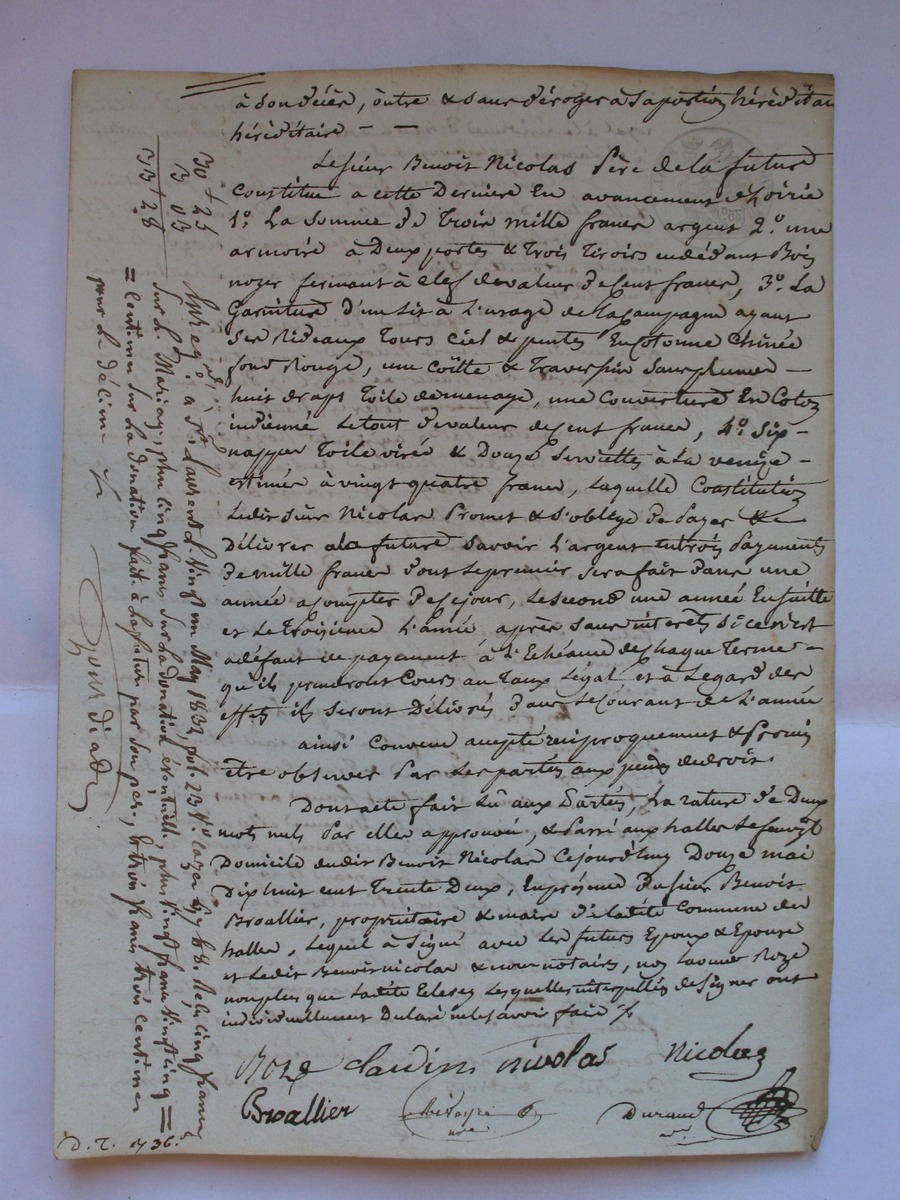 à Son décès, outre & sans déroger à Sa portion héréditai
héréditaire — —
Le sieur Benoit Nicolas Père de la future
Constitue a cette Derniere En avancement d'hoirie
1.º La Somme de Trois mille francs argent 2.º une
armoire à Deux portes & Trois Tiroirs Bois
noyer fermant à clef de valeur de Cent francs, 3.º La
Garniture d'un Lit à L'usage de La Campagne ayant
Ses Rideaux Tours Ciel & pentes En Cotonne Chinée
fond Rouge, une Coëtte & Traversin Sans plumes —
huit draps Toile de menage, une Couverture En Coton
indienne Le tout de valeur de Cent francs, 4.º Six
nappes Toile & Douze Serviettes à La venise —
estimées à vingt quatre francs, Laquelle Constitution
Ledit Sieur Nicolas Promet & S'oblige de Payer &
Délivrer a la future Savoir L'argent en trois Payements
De mille francs dont Le premier Sera fait Dans une
année a compter De Ce jour, Le Second une année En Suitte
et Le Troisieme L'année après Sans interets Si ce n'est
a défaut de payement à l'Echéance de Chaque Terme —
qu'ils prendront Cours au Taux Légal et a L'egard des
effets ils Seront Délivrés Dans Le Courant de L'année
ainsi Convenu accepté reciproquement & Promis
être observer Par Les parties aux peines de droit.
Dont acte fait Lû aux Parties, La rature de Deux
mots nuls Par elles approuvée, & Passé aux halles
Domicile dudit Benoit Nicolas Cejourd'huy Douze mai
Dix huit cent Trente Deux, En présence Du Sieur Benoit
Broallier, propriétaire & maire de Ladite Commune des
halles, Lequel à Signé avec Les futurs Epoux & Epouse
et Ledit Benoit nicolas & nous notaires, non Roze
non plus que Ladite Lesquelles interpellées de Signer ont
individuellement Declaré ne Savoir faire
Roze Claudine nicolas Nicolas
Broallier
Durand
30 + 25
3 03
33 + 28
Enreg.é à S.t Laurent L. Vingt un May 1832, fol. 23 V.º Cazes 6, 7 & 8. Reçu Cinq francs
sur L. Mariage, plus Cinq francs sur La donation éventuelle, plus vingt francs vingt cinq =
= Centimes sur La donation faite à La future par son père, & trois francs trois Centimes
pour L. décime.
D. T. 1736.